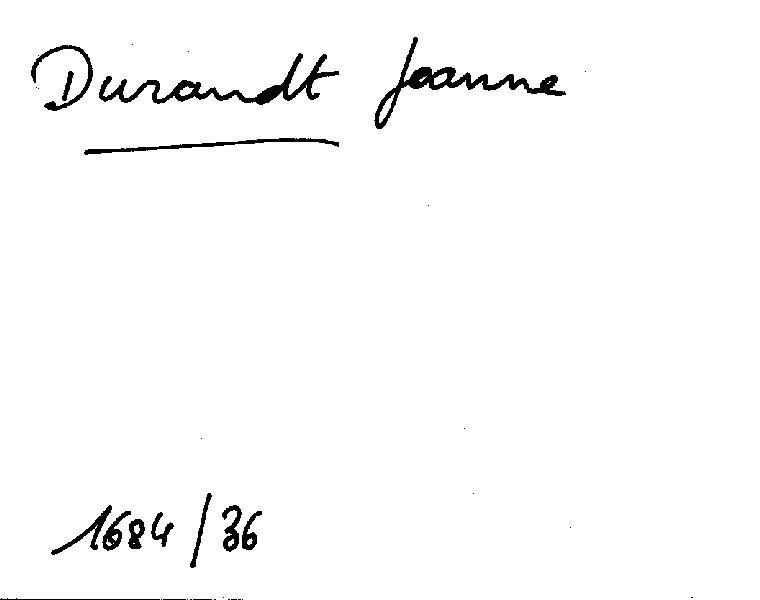 Durandt Jeanne
1684/36